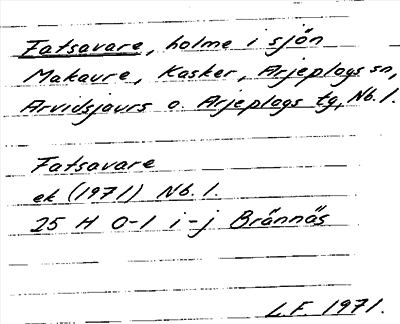 Fatsavare, holme i sjön
Makaure, Kasker, Arjeplogs sn,
Arvidsjaurs o. Arjeplogs tg, Nb. 1.
Fatsavare
ek (1971) Nb. 1.
25 H 0-1 i-j Brännäs
L.F. 1971.